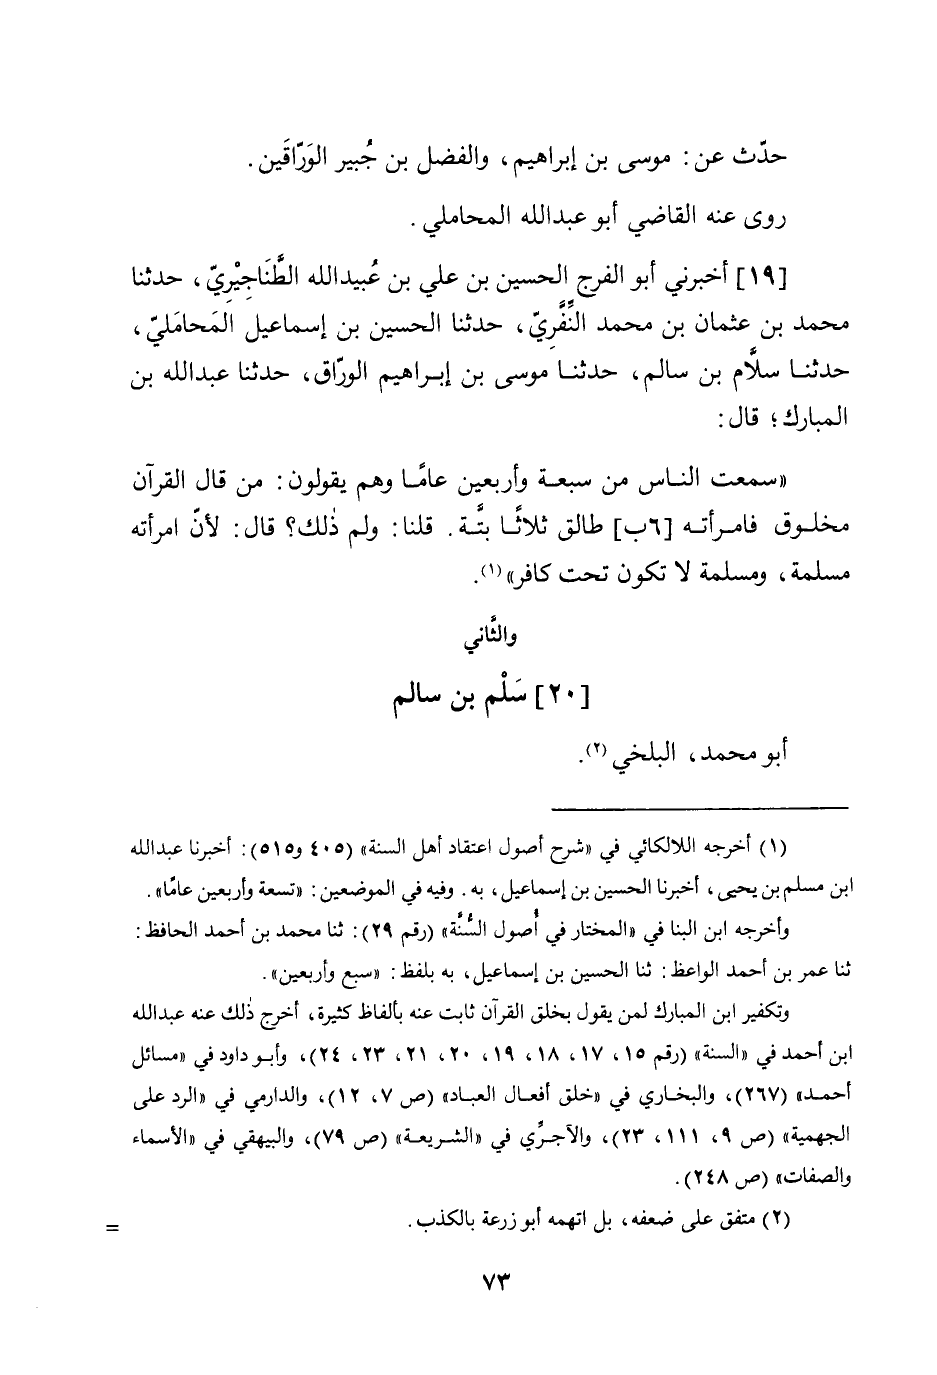 حدّث عن: موسى بن إبراهيم، والفضل بن جُبير الوَرّاقَين.
روى عنه القاضي أبو عبدالله المحاملي.
[١٩] أخبرني أبو الفرج الحسين بن علي بن عُبيدالله الطَّنَاجِيْرِيّ، حدثنا
محمد بن عثمان بن محمد النِّفَّرِيّ، حدثنا الحسين بن إسماعيل المَحامَليّ،
حدثنـا سلَّام بن سالم، حدثنـا موسى بن إبـراهيم الورّاق، حدثنا عبدالله بن
المبارك؛ قال:
«سمعت النـاس من سبعـة وأربعين عامًـا وهم يقولون: من قال القرآن
مخلـوق فامـرأتـه [٦ب] طالق ثلاثًـا بتَّـة. قلنا: ولم ذٰلك؟ قال: لأنّ امرأته
مسلمة، ومسلمة لا تكون تحت كافر»(١).
والثَّاني
[٢٠] سَلْم بن سالم
أبو محمد، البلخي(٢).
(١) أخرجه اللالكائي في «شرح أصول اعتقاد أهل السنة» (٤٠٥ و٥١٥): أخبرنا عبدالله
ابن مسلم بن يحيى، أخبرنا الحسين بن إسماعيل، به. وفيه في الموضعين: «تسعة وأربعين عامًا».
وأخرجه ابن البنا في «المختار في أُصول السُّنَّة» (رقم ٢٩): ثنا محمد بن أحمد الحافظ:
ثنا عمر بن أحمد الواعظ: ثنا الحسين بن إسماعيل، به بلفظ: «سبع وأربعين».
وتكفير ابن المبارك لمن يقول بخلق القرآن ثابت عنه بألفاظ كثيرة، أخرج ذٰلك عنه عبدالله
ابن أحمد في «السنة» (رقم ١٥، ١٧، ١٨، ١٩، ٢٠، ٢١، ٢٣، ٢٤)، وأبـو داود في «مسائل
أحمـد» (٢٦٧)، والبخـاري في «خلق أفعـال العبـاد» (ص ٧، ١٢)، والدارمي في «الرد على
الجهمية» (ص ٩، ١١١، ٢٣)، والآجـرِّي في «الشـريعـة» (ص ٧٩)، والبيهقي في «الأسماء
والصفات» (ص ٢٤٨).
(٢) متفق على ضعفه، بل اتهمه أبو زرعة بالكذب.
=
٧٣